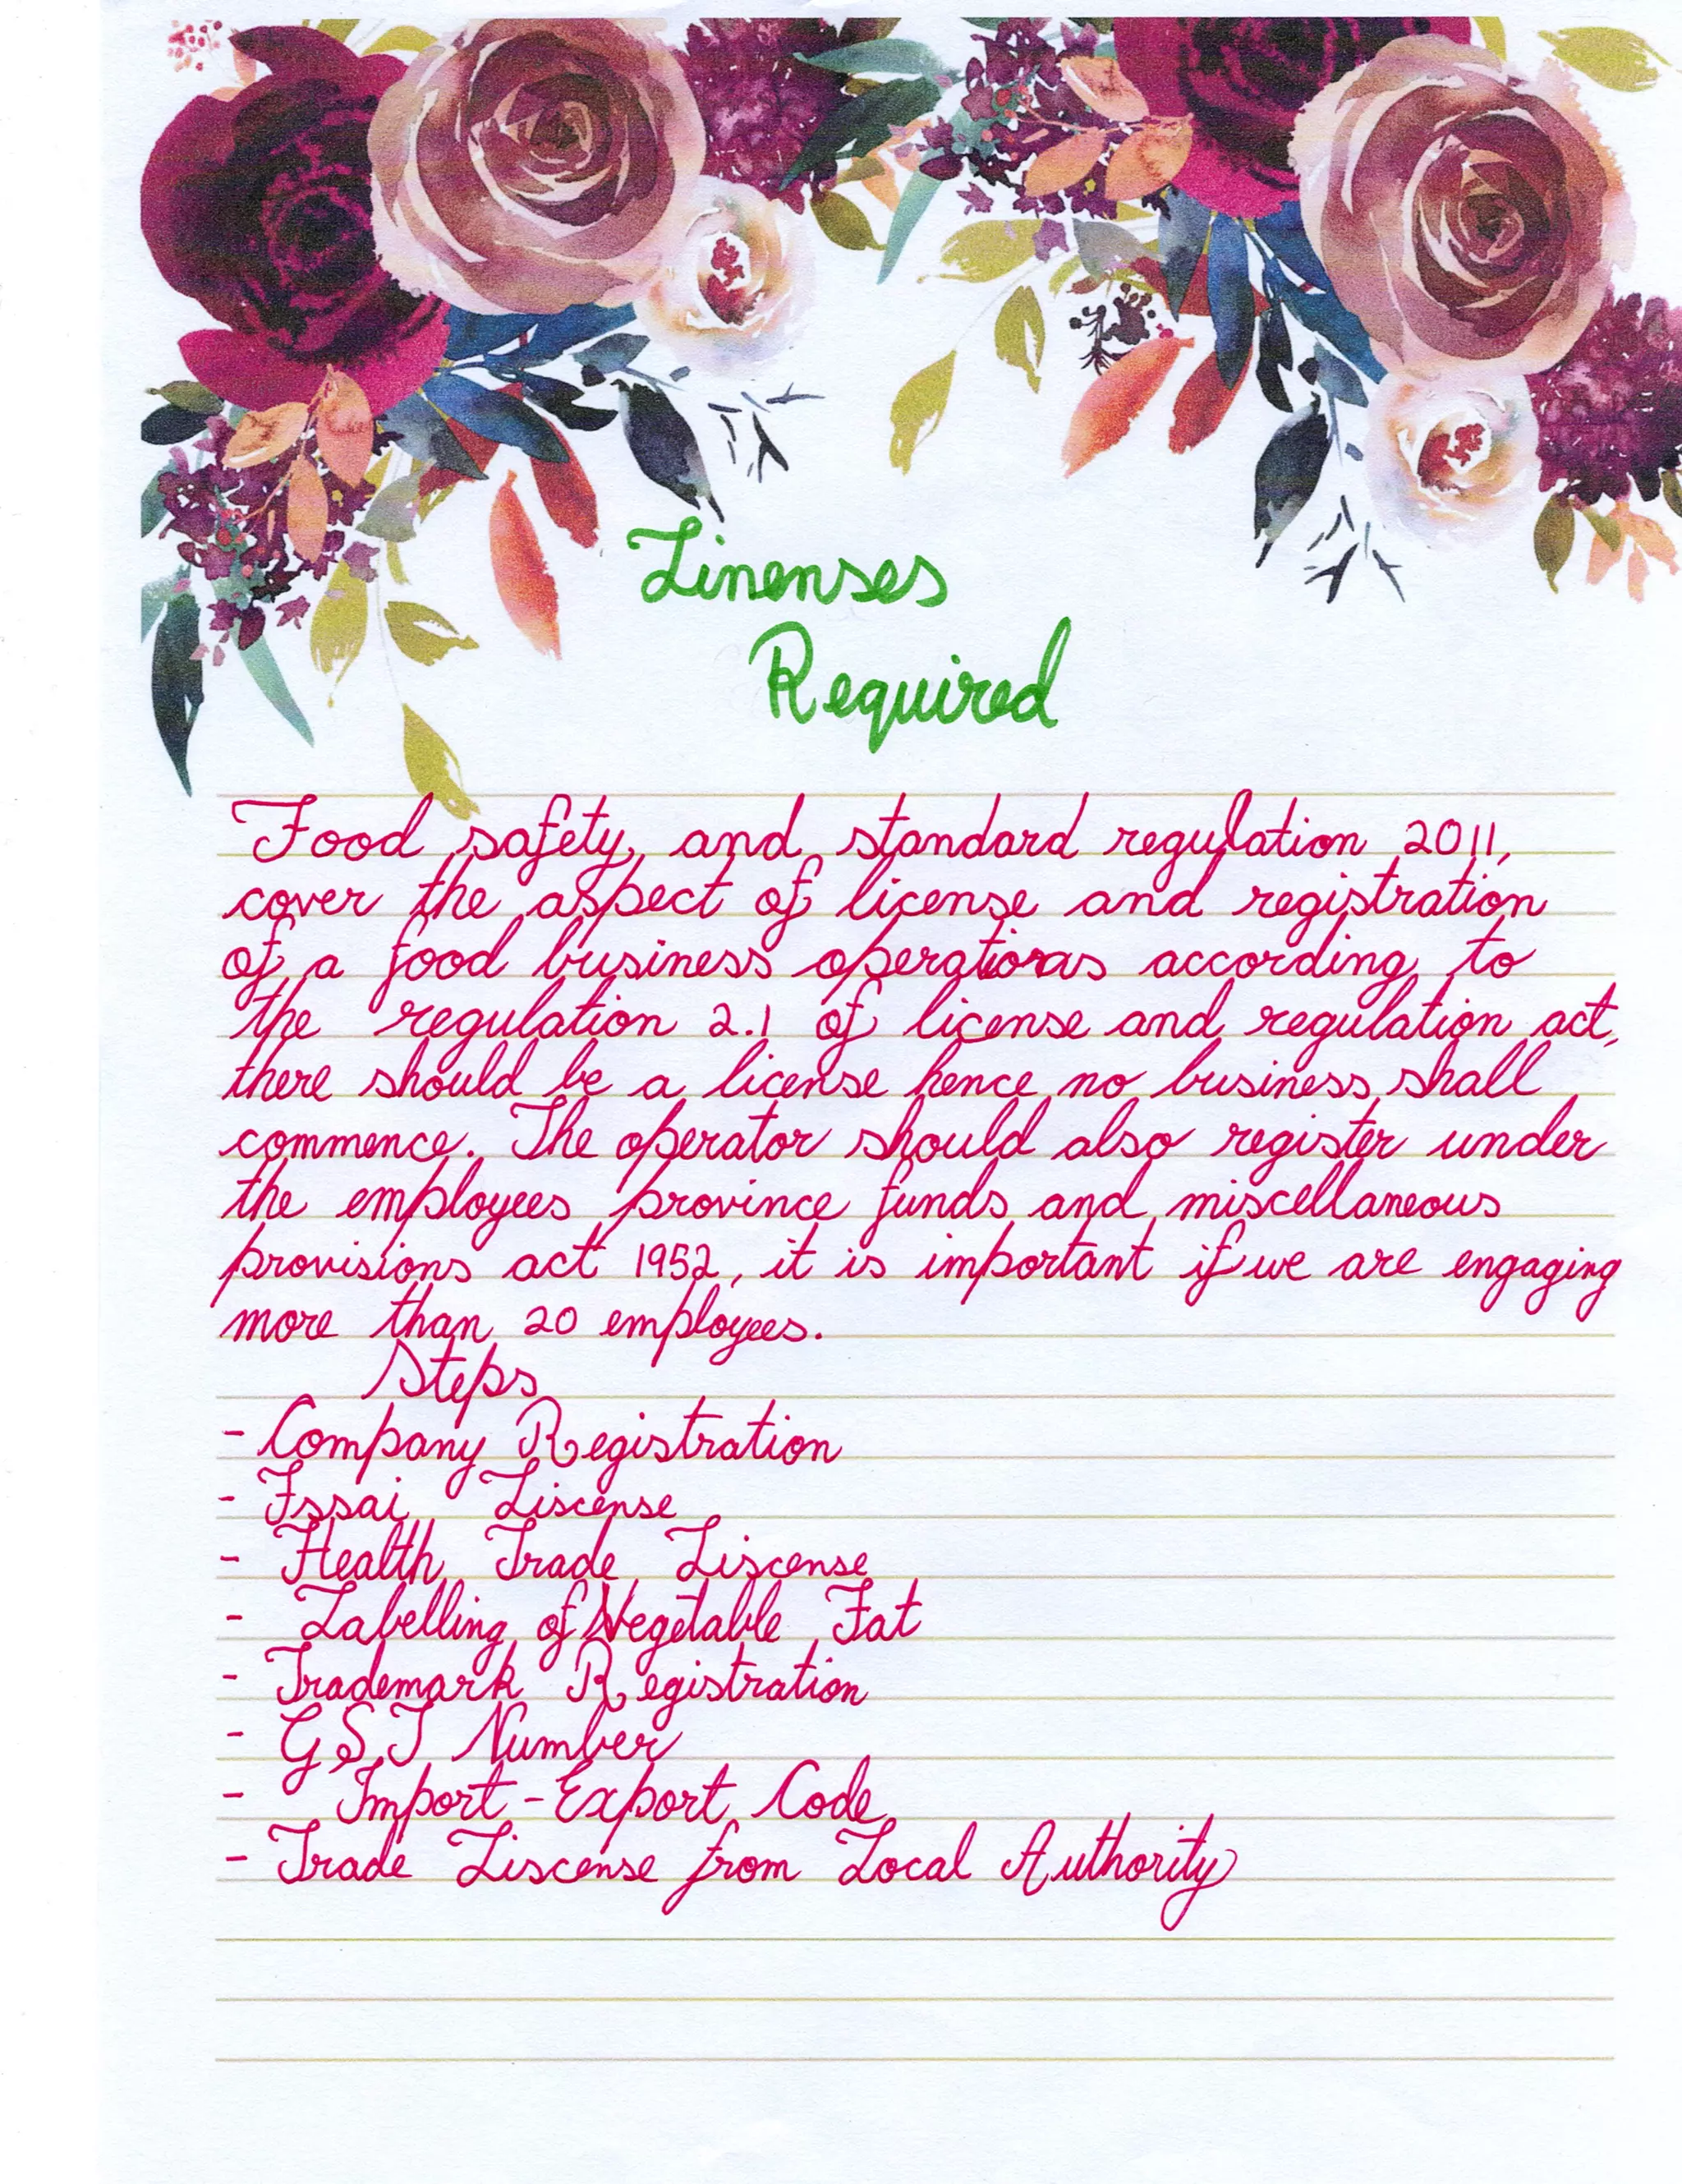 Linenses
Required
Food safety, and standard regulation 2011,
cover the aspect of license and registration
of a food business operations according to
the regulation 2.1 of license and regulation act,
there should be a license hence no business shall
commence. The operator should also register under
the employees province funds and miscellaneous
provisions act 1952, it is important if we are engaging
more than 20 employees.
Steps
- Company Registration
- Fssai Liscense
- Health Trade Liscense
- Labelling of Vegetable Fat
- Trademark Registration
- GST Number
- Import-Export Code
- Trade Liscense from Local Authority